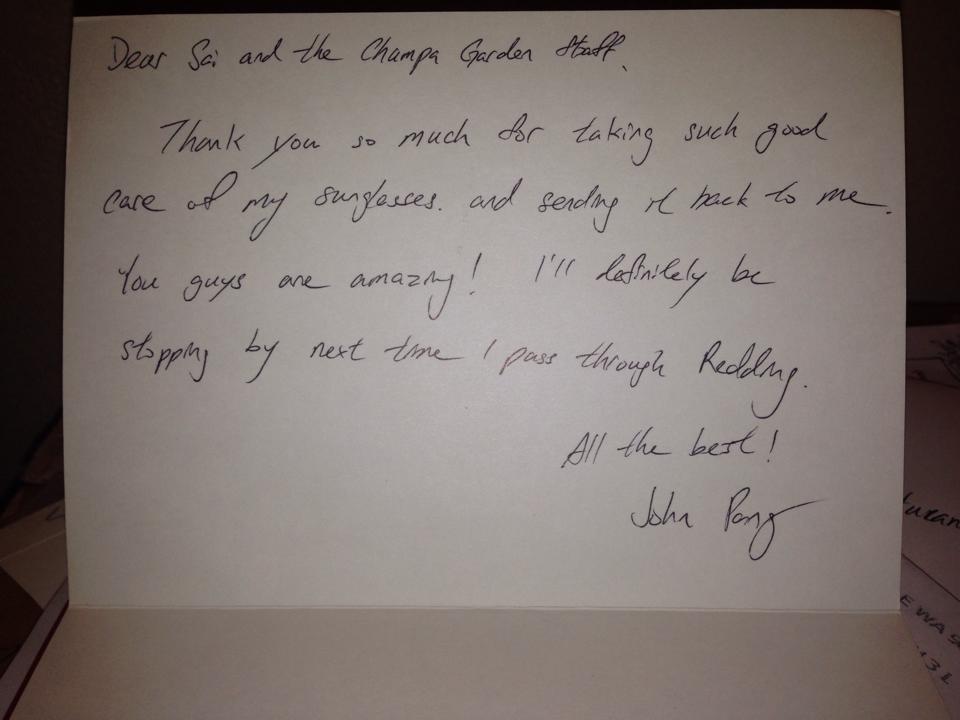 Dear Sai and the Champa Garden Staff,
Thank you so much for taking such good
care of my sunglasses. and sending it back to me.
You guys are amazing! I'll definitely be
stopping by next time I pass through Redding.
All the best!
John Pang